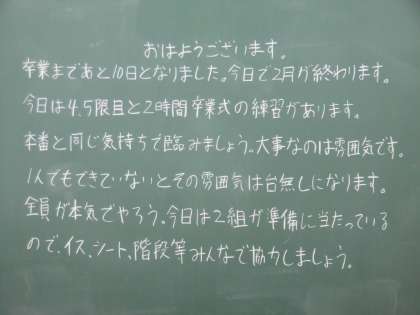 おはようございます。
卒業まであと10日となりました。今日で2月が終わります。
今日は4.5限目と2時間卒業式の練習があります。
本番と同じ気持ちで臨みましょう。大事なのは雰囲気です。
1人でもできていないとその雰囲気は台無しになります。
全員が本気でやろう。今日は2組が準備に当たっている
ので、イス、シート、階段等みんなで協力しましょう。